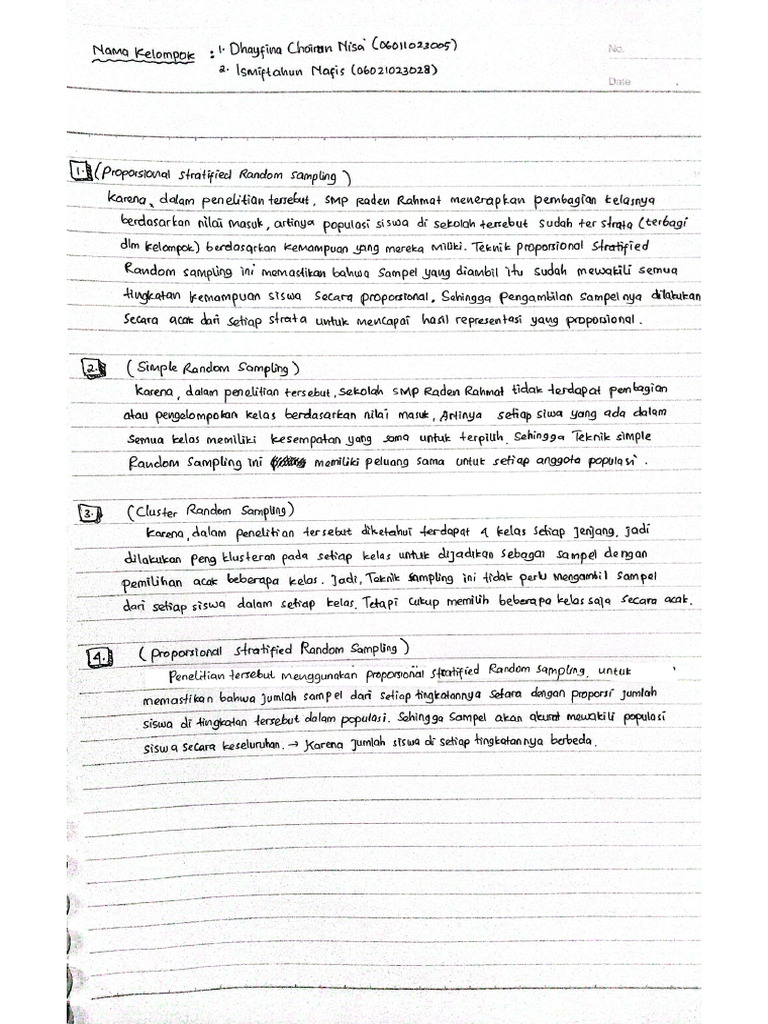 Nama Kelompok : 1. Dhayfina Choirun Nisa' (06011023005)
2. Ismiftahun Nafis (06021023028)
No.
Date
1. (Proporsional Stratified Random Sampling)
Karena, dalam penelitian tersebut, SMP Raden Rahmat menerapkan pembagian kelasnya
berdasarkan nilai masuk, artinya populasi siswa di sekolah tersebut sudah ter strata (terbagi
dlm kelompok) berdasarkan kemampuan yang mereka miliki. Teknik proporsional Stratified
Random sampling ini memastikan bahwa Sampel yang diambil itu sudah mewakili semua
tingkatan kemampuan siswa secara proporsional. Sehingga Pengambilan Sampelnya dilakukan
secara acak dari setiap strata untuk mencapai hasil representasi yang proporsional.
2. (Simple Random Sampling)
Karena, dalam penelitian tersebut, Sekolah SMP Raden Rahmat tidak terdapat pembagian
atau pengelompokan kelas berdasarkan nilai masuk, Artinya setiap siwa yang ada dalam
semua kelas memiliki kesempatan yang sama untuk terpilih. Sehingga Teknik simple
Random Sampling ini memiliki peluang sama untuk setiap anggota populasi.
3. (Cluster Random Sampling)
Karena, dalam penelitian tersebut diketahui terdapat 4 kelas Setiap Jenjang, Jadi
dilakukan peng klusteran pada setiap kelas untuk dijadikan sebagai sampel dengan
pemilihan acak beberapa kelas. Jadi, Teknik Sampling ini tidak perlu Mengambil Sampel
dari setiap siswa dalam setiap kelas. Tetapi cukup memilih beberapa kelas saja secara acak.
4. (Proporsional Stratified Random Sampling)
Penelitian tersebut menggunakan proporsional stratified Random sampling, untuk
memastikan bahwa jumlah sampel dari setiap tingkatannya setara dengan proporsi jumlah
siswa di tingkatan tersebut dalam populasi. Sehingga Sampel akan akurat mewakili populasi
siswa secara keseluruhan. → Karena Jumlah siswa di setiap tingkatannya berbeda.